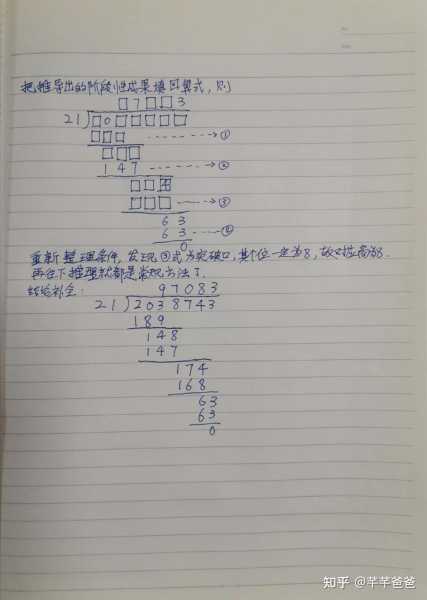 把推导出的阶段性成果填回算式，则
□7□□3
21)□0□□□□□
□□□ ------→①
□□□
147 ------→②
□□□
□□□ ——→③
63
63 ----→④
0
重新整理条件，发现③式为突破口，其个位一定为8，故口诀商为8.
再往下推理就都是常规方法了.
结论补全：
97083
21)2038743
189
148
147
174
168
63
63
0
知乎 @芊芊爸爸